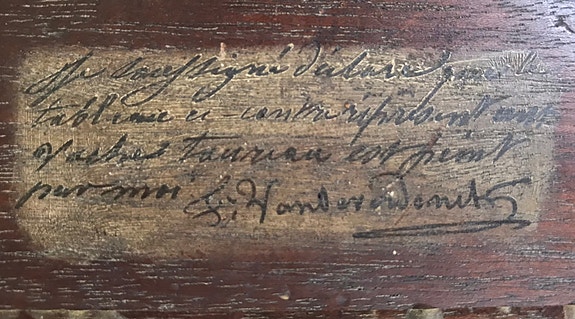 Je soussigné déclare que le
tableau ci-contre représentant une
vache & taureau est peint
par moi